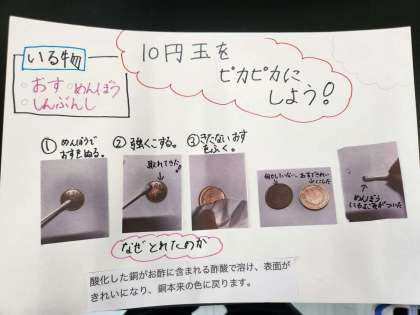 いる物
・おす・めんぼう
・しんぶんし
10円玉を
ピカピカに
しよう!
① めんぼうで
おすをぬる。
② 強くこする。
③ きたないおす
をふく。
取れてきた!
何かしていない
おすできれい
めんぼう
なぜとれたのか
酸化した銅がお酢に含まれる酢酸で溶け、表面が
きれいになり、銅本来の色に戻ります。